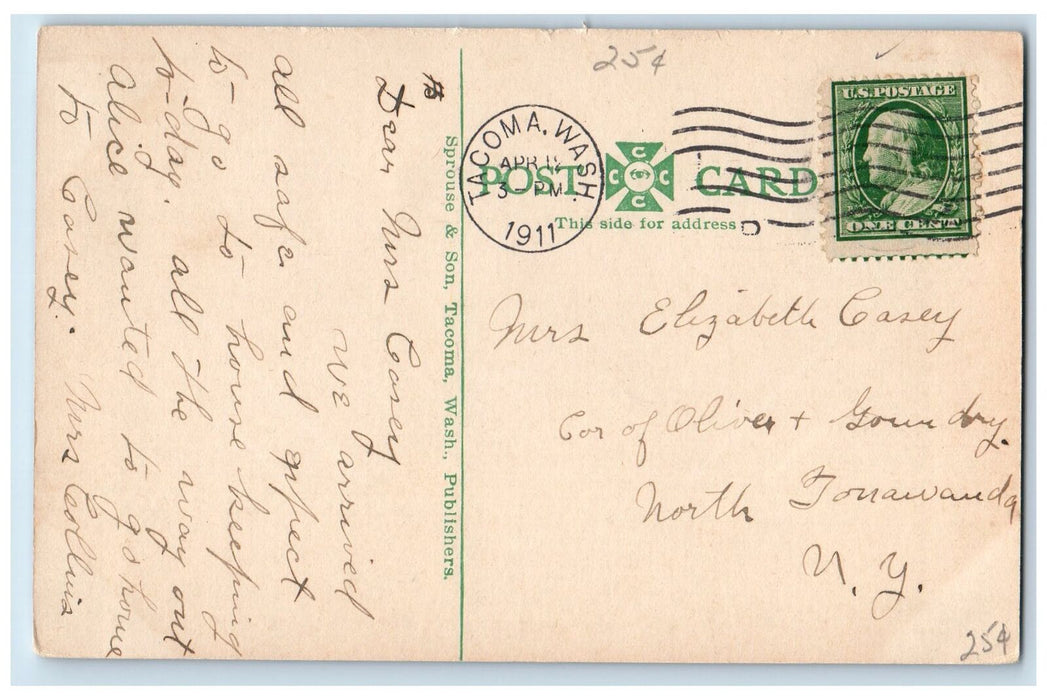 25¢
U.S. POSTAGE
ONE CENT
TACOMA, WASH.
APR 12
3 - PM
1911
POST CARD
C C C C
This side for address
D
Mrs Elizabeth Casey
Cor of Oliver + Goundry.
North Tonawanda
N. Y.
25¢
Sprouse & Son, Tacoma, Wash., Publishers.
Dear Mrs Casey
We arrived
all safe and expect
to go to house keeping
to-day. all the way out
Alice wanted to go home
to Casey. Mrs Collins